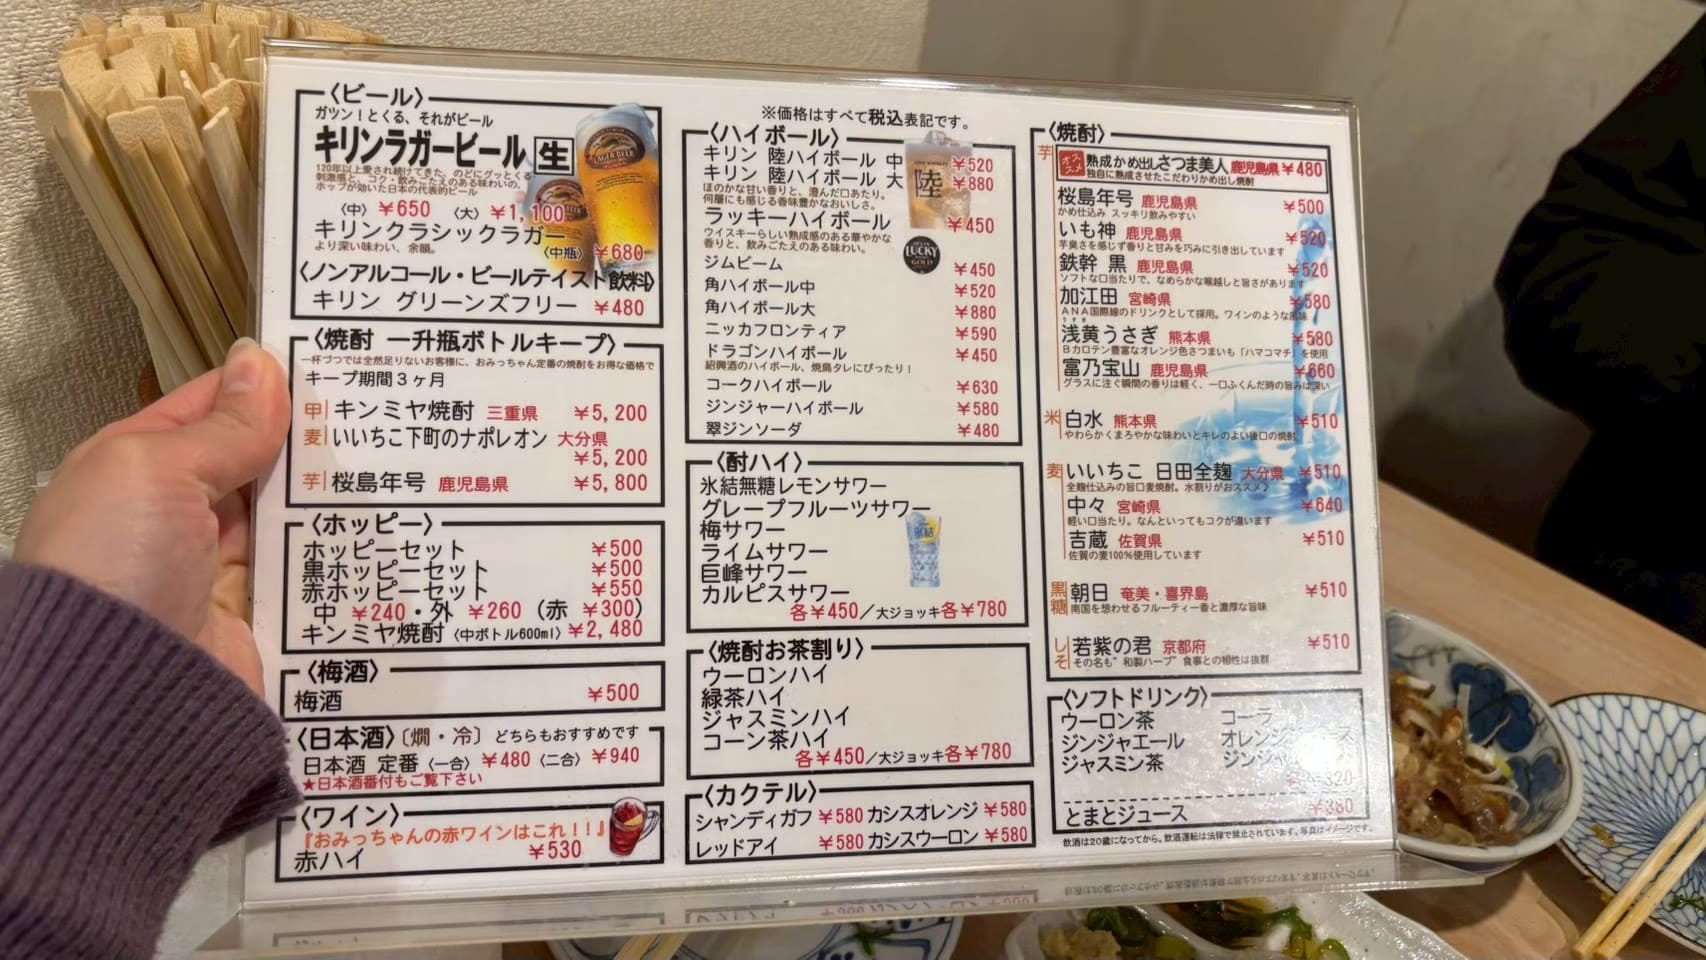 ※価格はすべて税込表記です。
〈ビール〉
ガツン！とくる、それがビール
キリンラガービール 生
120年以上愛され続けてきた、のどにグッとくる
刺激感と、コク・飲みごたえのある味わいの、
ホップが効いた日本の代表的ビール
〈中〉 ￥650 〈大〉 ￥1,100
キリンクラシックラガー
より深い味わい、余韻。 〈中瓶〉 ￥680
〈ノンアルコール・ビールテイスト飲料〉
キリン グリーンズフリー ￥480
〈焼酎 一升瓶ボトルキープ〉
一杯づつでは全然足りないお客様に、おみっちゃん定番の焼酎をお得な価格で
キープ期間３ヶ月
甲 キンミヤ焼酎 三重県 ￥5,200
麦 いいちこ下町のナポレオン 大分県
￥5,200
芋 桜島年号 鹿児島県 ￥5,800
〈ホッピー〉
ホッピーセット ￥500
黒ホッピーセット ￥500
赤ホッピーセット ￥550
中 ￥240・外 ￥260 （赤 ￥300）
キンミヤ焼酎〈中ボトル600ml〉￥2,480
〈梅酒〉
梅酒 ￥500
〈日本酒〉〔燗・冷〕どちらもおすすめです
日本酒 定番 〈一合〉 ￥480 〈二合〉 ￥940
★日本酒番付もご覧下さい
〈ワイン〉
『おみっちゃんの赤ワインはこれ！！』
赤ハイ ￥530
〈ハイボール〉
キリン 陸ハイボール 中 ￥520
キリン 陸ハイボール 大 ￥880
ほのかな甘い香りと、澄んだ口あたり。
何層にも感じる香味豊かなおいしさ。
陸
ラッキーハイボール ￥450
ウイスキーらしい熟成感のある華やかな
香りと、飲みごたえのある味わい。
LUCKY
GOLD
ジムビーム ￥450
角ハイボール中 ￥520
角ハイボール大 ￥880
ニッカフロンティア ￥590
ドラゴンハイボール ￥450
紹興酒のハイボール、焼鳥タレにぴったり！
コークハイボール ￥630
ジンジャーハイボール ￥580
翠ジンソーダ ￥480
〈酎ハイ〉
氷結無糖レモンサワー
グレープフルーツサワー
梅サワー
ライムサワー
巨峰サワー
カルピスサワー
氷結
各￥450／大ジョッキ各￥780
〈焼酎お茶割り〉
ウーロンハイ
緑茶ハイ
ジャスミンハイ
コーン茶ハイ
各￥450／大ジョッキ各￥780
〈カクテル〉
シャンディガフ ￥580 カシスオレンジ ￥580
レッドアイ ￥580 カシスウーロン ￥580
〈焼酎〉
芋 オススメ 熟成かめ出しさつま美人 鹿児島県 ￥480
独自に熟成させたこだわりかめ出し焼酎
桜島年号 鹿児島県 ￥500
かめ仕込み スッキリ飲みやすい
いも神 鹿児島県 ￥520
芋臭さを感じず香りと甘みを巧みに引き出しています
鉄幹 黒 鹿児島県 ￥520
ソフトな口当たりで、なめらかな喉越しと旨さがあります
加江田 宮崎県 ￥580
ＡＮＡ国際線のドリンクとして採用。ワインのような風味
浅黄うさぎ 熊本県 ￥580
Ｂカロテン豊富なオレンジ色さつまいも「ハマコマチ」を使用
富乃宝山 鹿児島県 ￥660
グラスに注ぐ瞬間の香りは軽く、一口ふくんだ時の旨みは深い
米 白水 熊本県 ￥510
やわらかくまろやかな味わいとキレのよい後口の焼酎
麦 いいちこ 日田全麹 大分県 ￥510
全麹仕込みの旨口麦焼酎。水割りがおススメ♪
中々 宮崎県 ￥640
軽い口当たり。なんといってもコクが違います
吉蔵 佐賀県 ￥510
佐賀の麦100%使用しています
黒糖 朝日 奄美・喜界島 ￥510
南国を想わせるフルーティー香と濃厚な旨味
しそ 若紫の君 京都府 ￥510
その名も”和製ハーブ”食事との相性は抜群
〈ソフトドリンク〉
ウーロン茶 コーラ
ジンジャエール オレンジジュース
ジャスミン茶
￥320
とまとジュース ￥380
飲酒は20歳になってから。飲酒運転は法律で禁止されています。写真はイメージです。